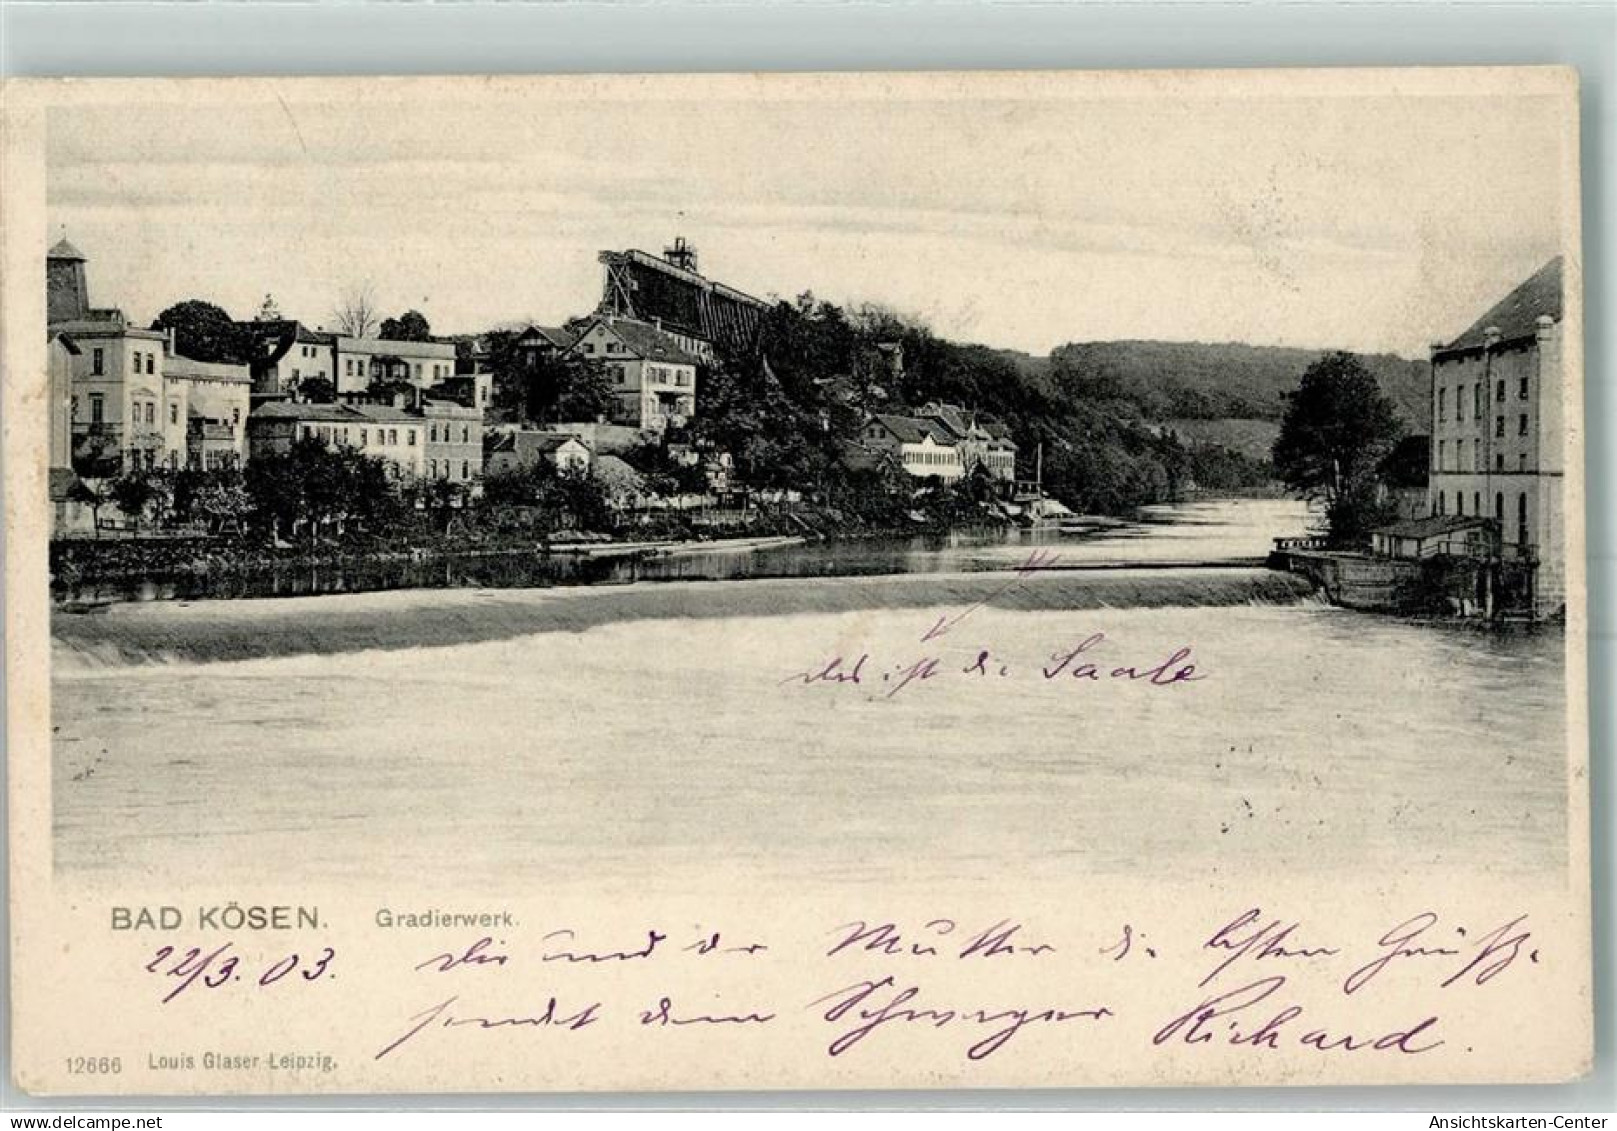 das ist die Saale
BAD KÖSEN. Gradierwerk.
22/3. 03. Dir und der Mutter die besten Grüße
sendet dein Schwager Richard.
12666 Louis Glaser Leipzig.
delcampe.net
Ansichtskarten-Center